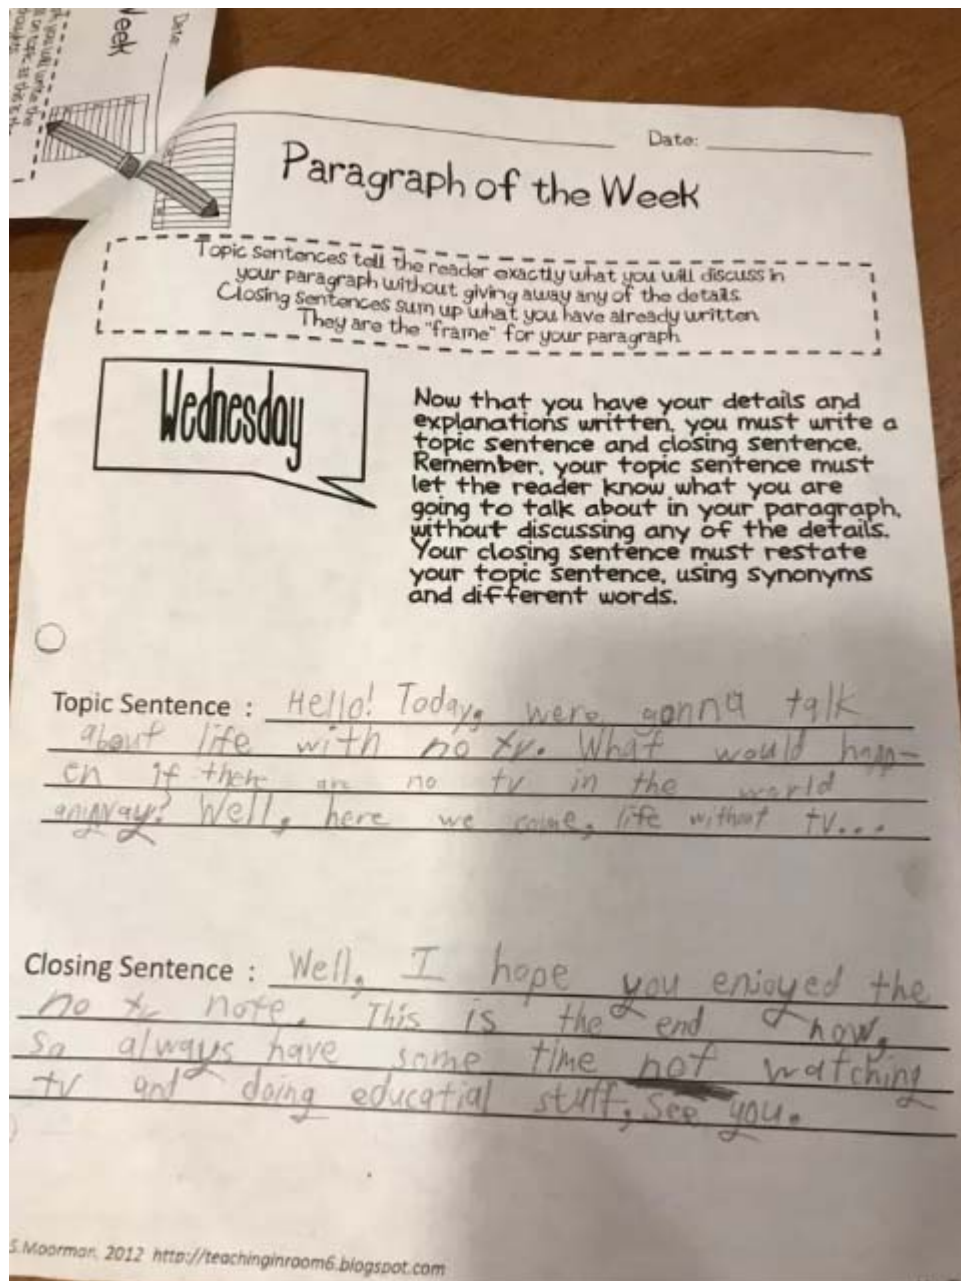 Date:
Week
Date:
Paragraph of the Week
Topic sentences tell the reader exactly what you will discuss in
your paragraph without giving away any of the details.
Closing sentences sum up what you have already written.
They are the "frame" for your paragraph.
Wednesday
Now that you have your details and
explanations written, you must write a
topic sentence and closing sentence.
Remember, your topic sentence must
let the reader know what you are
going to talk about in your paragraph,
without discussing any of the details.
Your closing sentence must restate
your topic sentence, using synonyms
and different words.
Topic Sentence : Hello! Today, were gonna talk
about life with no tv. What would happ-
en if ther are no tv in the world
anyway? Well, here we come, life without tv...
Closing Sentence : Well, I hope you enjoyed the
no tv note. This is the end now,
so always have some time not watching
tv and doing educatial stuff, see you.
S.Moorman, 2012 http://teachinginroom6.blogspot.com